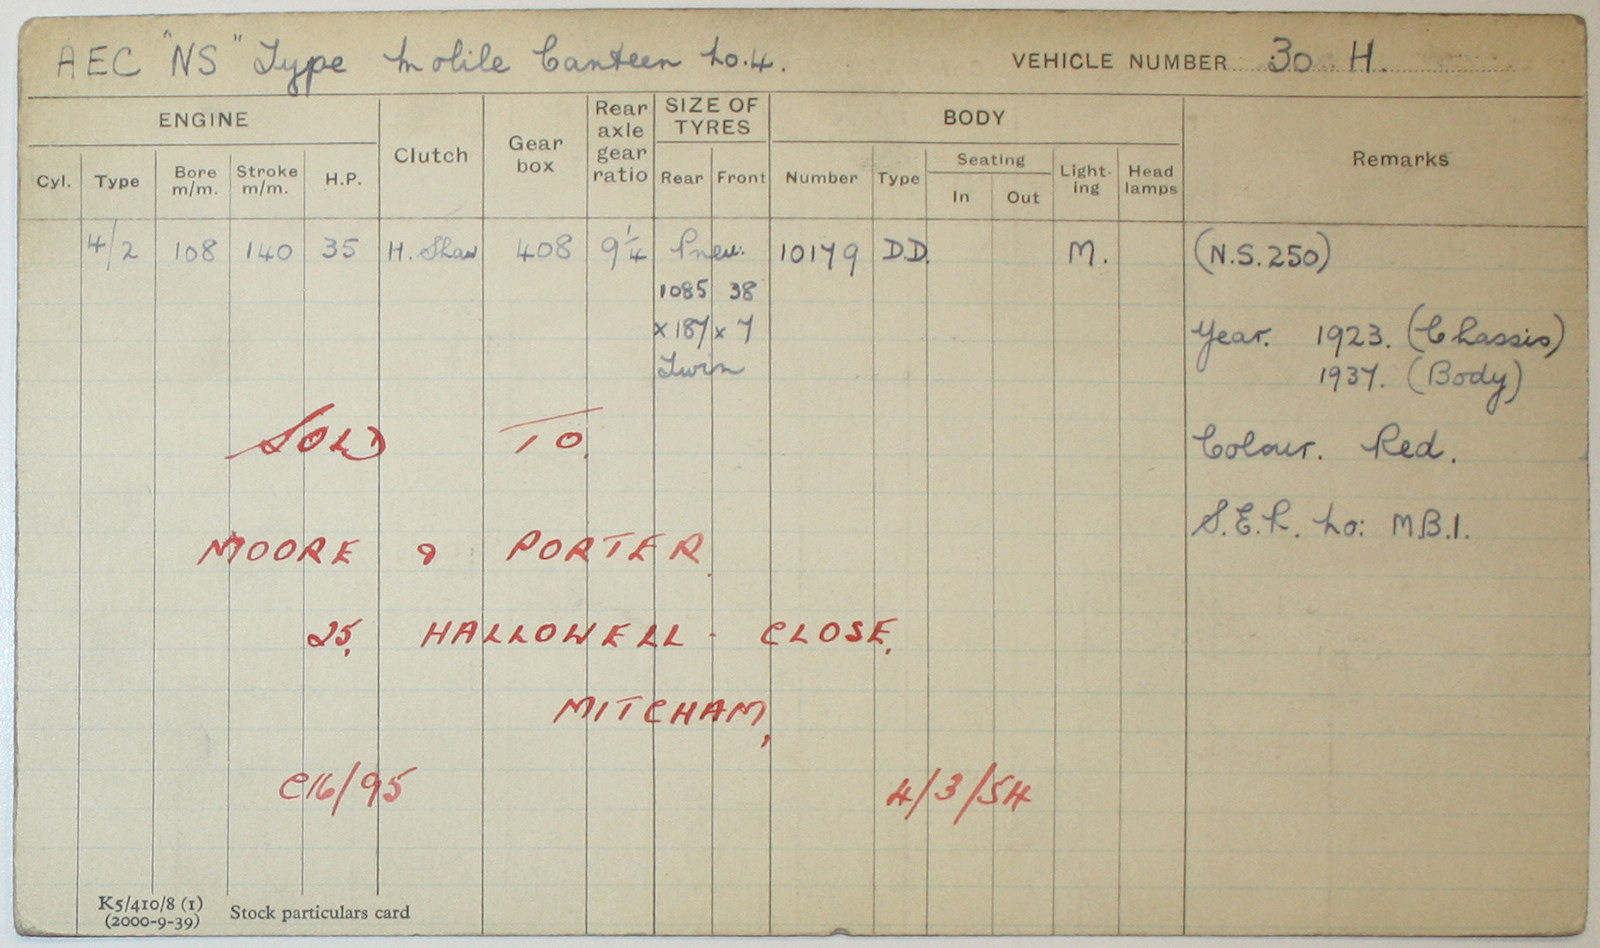 AEC "NS" Type Mobile Canteen No. 4. VEHICLE NUMBER 30 H.
ENGINE Clutch Gear box Rear axle gear ratio SIZE OF TYRES BODY Remarks
Cyl. Type Bore m/m. Stroke m/m. H.P. Rear Front Number Type Seating In Out Light-ing Head lamps
4/2 108 140 35 H. Shaw 408 9 1/4 Pneu. 10179 D.D. M. (N.S. 250)
1085 38
x 187 x 7 Year. 1923. (Chassis)
Twin 1937. (Body)
SOLD TO. Colour. Red.
S.E.R. No: MB.1.
MOORE & PORTER.
25, HALLOWELL - CLOSE,
MITCHAM,
C16/95 4/3/54
K5/410/8 (1)
(2000-9-39) Stock particulars card